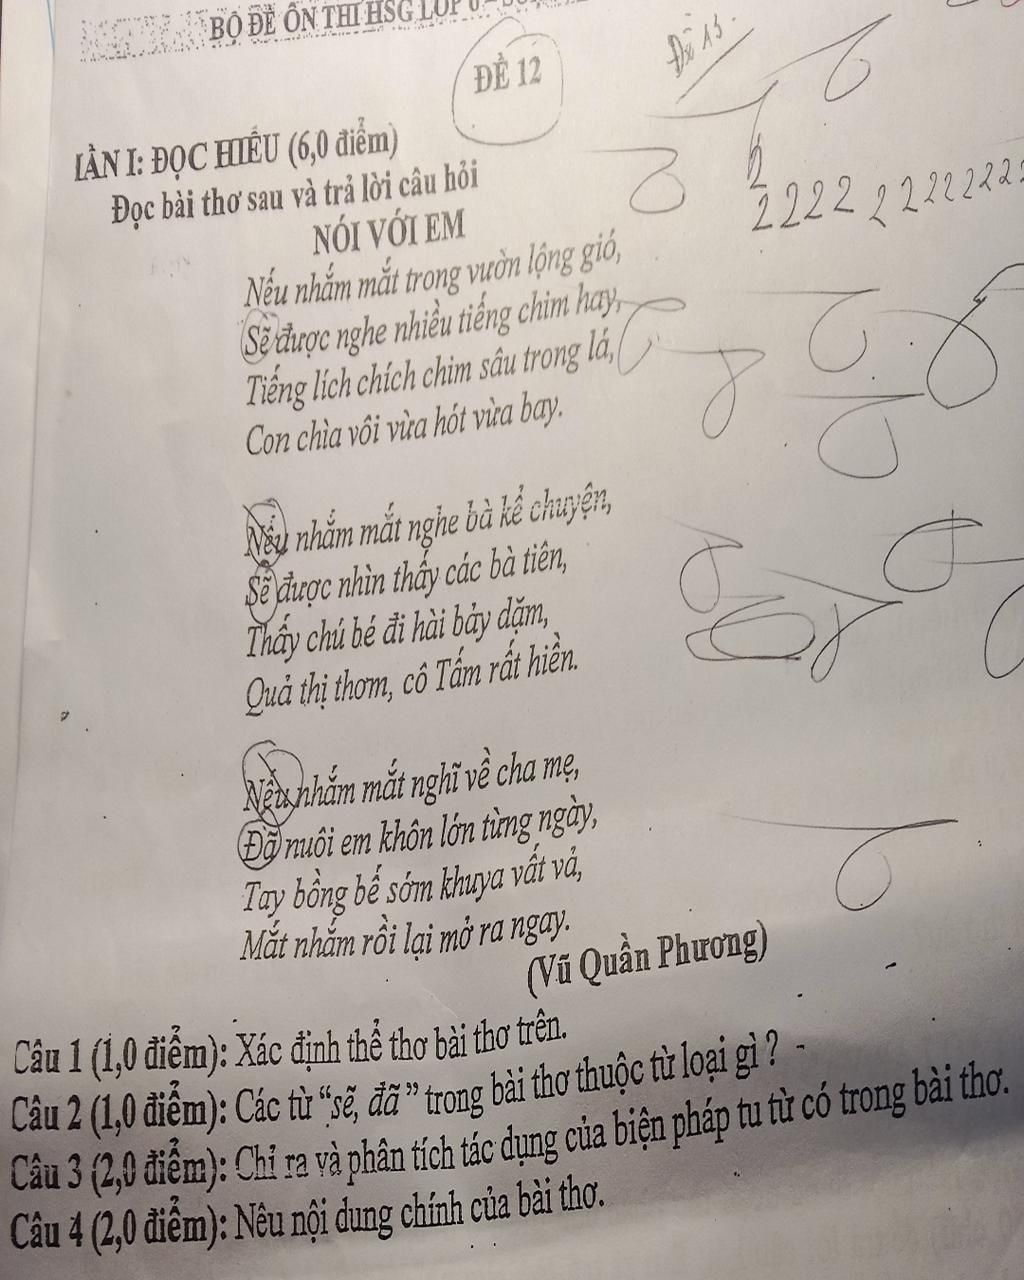 BỘ ĐỀ ÔN THI HSG LỚP 6
ĐỀ 12
Đề 13
PHẦN I: ĐỌC HIỂU (6,0 điểm)
Đọc bài thơ sau và trả lời câu hỏi
2
2222 22222222
NÓI VỚI EM
Nếu nhắm mắt trong vườn lộng gió,
Sẽ được nghe nhiều tiếng chim hay,
Tiếng lích chích chim sâu trong lá,
Con chìa vôi vừa hót vừa bay.
Nếu nhắm mắt nghe bà kể chuyện,
Sẽ được nhìn thấy các bà tiên,
Thấy chú bé đi hài bảy dặm,
Quả thị thơm, cô Tấm rất hiền.
Nếu nhắm mắt nghĩ về cha mẹ,
Đã nuôi em khôn lớn từng ngày,
Tay bồng bế sớm khuya vất vả,
Mắt nhắm rồi lại mở ra ngay.
(Vũ Quần Phương)
Câu 1 (1,0 điểm): Xác định thể thơ bài thơ trên.
Câu 2 (1,0 điểm): Các từ “sẽ, đã” trong bài thơ thuộc từ loại gì ?
Câu 3 (2,0 điểm): Chỉ ra và phân tích tác dụng của biện pháp tu từ có trong bài thơ.
Câu 4 (2,0 điểm): Nêu nội dung chính của bài thơ.